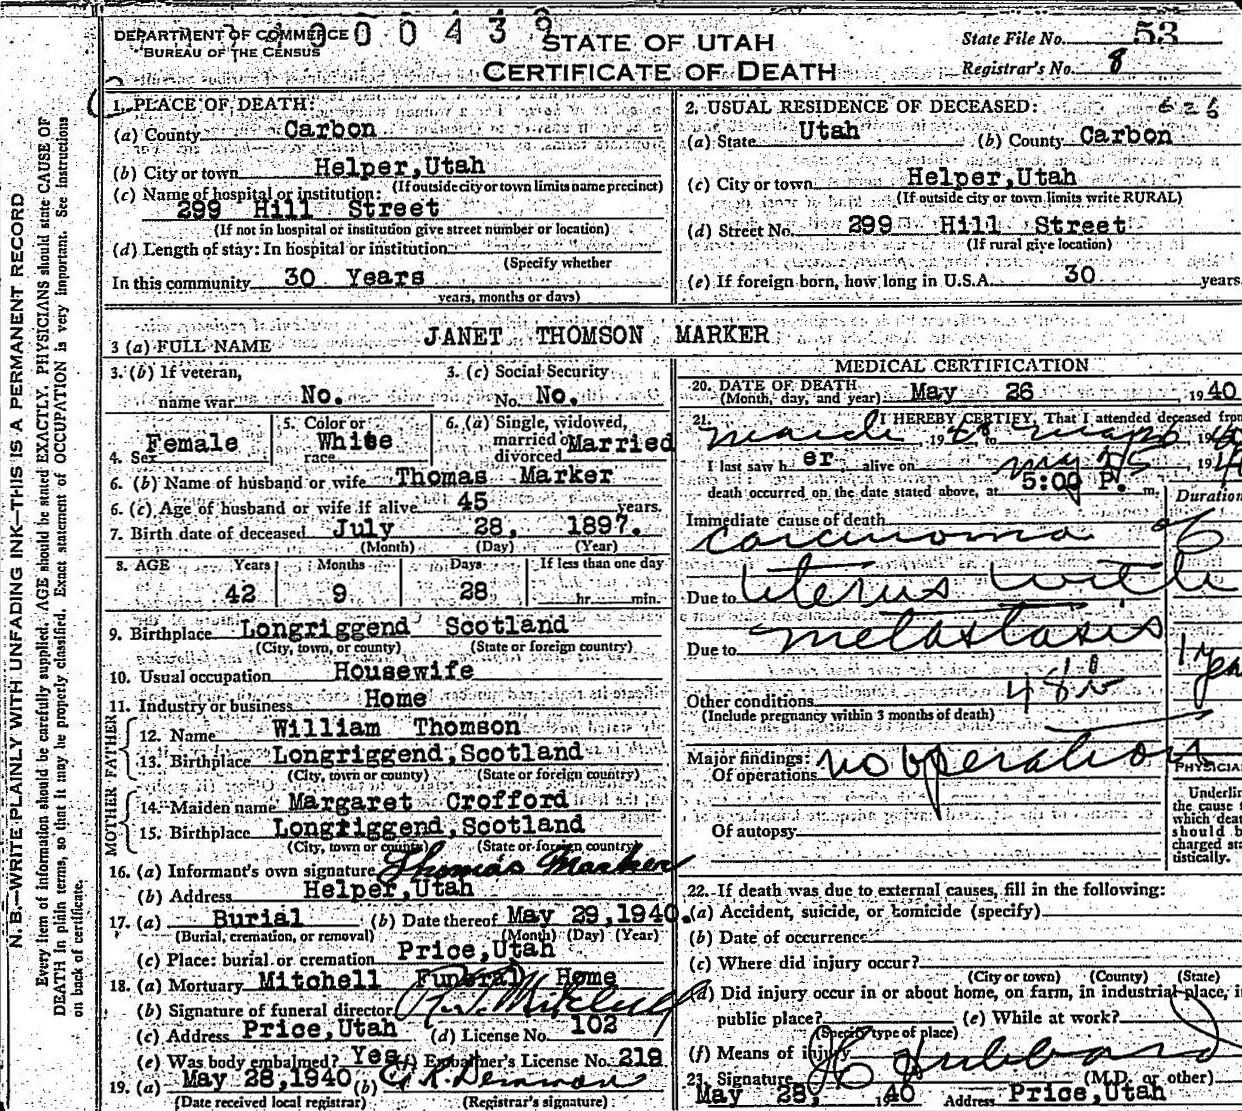 DEPARTMENT OF COMMERCE
BUREAU OF THE CENSUS
000439
STATE OF UTAH
CERTIFICATE OF DEATH
State File No. 53
Registrar's No. 8
N. B.—WRITE PLAINLY WITH UNFADING INK—THIS IS A PERMANENT RECORD
Every item of information should be carefully supplied. AGE should be stated EXACTLY. PHYSICIANS should state CAUSE OF
DEATH in plain terms, so that it may be properly classified. Exact statement of OCCUPATION is very important. See instructions
on back of certificate.
1. PLACE OF DEATH:
(a) County Carbon
(b) City or town Helper,Utah
(If outside city or town limits name precinct)
(c) Name of hospital or institution:
299 Hill Street
(If not in hospital or institution give street number or location)
(d) Length of stay: In hospital or institution
(Specify whether
In this community 30 Years
years, months or days)
2. USUAL RESIDENCE OF DECEASED:
(a) State Utah (b) County Carbon
(c) City or town Helper,Utah
(If outside city or town limits write RURAL)
(d) Street No. 299 Hill Street
(If rural give location)
(e) If foreign born, how long in U.S.A. 30 years
3 (a) FULL NAME JANET THOMSON MARKER
3. (b) If veteran,
name war No.
3. (c) Social Security
No. No.
4. Sex Female
5. Color or
race White
6. (a) Single, widowed,
married or
divorced Married
6. (b) Name of husband or wife Thomas Marker
6. (c) Age of husband or wife if alive 45 years.
7. Birth date of deceased July 28, 1897.
(Month) (Day) (Year)
8. AGE Years Months Days If less than one day
42 9 28 hr. min.
9. Birthplace Longriggend Scotland
(City, town, or county) (State or foreign country)
10. Usual occupation Housewife
11. Industry or business Home
FATHER
12. Name William Thomson
13. Birthplace Longriggend,Scotland
(City, town or county) (State or foreign country)
MOTHER
14. Maiden name Margaret Crofford
15. Birthplace Longriggend,Scotland
(City, town or county) (State or foreign country)
16. (a) Informant's own signature Thomas Marker
(b) Address Helper,Utah
17. (a) Burial (b) Date thereof May 29,1940.
(Burial, cremation, or removal) (Month) (Day) (Year)
(c) Place: burial or cremation Price,Utah
18. (a) Mortuary Mitchell Funeral Home
(b) Signature of funeral director
(c) Address Price,Utah (d) License No. 102
(e) Was body embalmed? Yes (f) Embalmer's License No. 218
19. (a) May 28,1940 (b)
(Date received local registrar) (Registrar's signature)
MEDICAL CERTIFICATION
20. DATE OF DEATH May 26 1940
(Month, day, and year)
21. I HEREBY CERTIFY, That I attended deceased from
I last saw her alive on May 25 1940
death occurred on the date stated above, at 5:00 P. m.
Duration
Immediate cause of death
carcinoma of
Due to Uterus with
Due to metastasis
1 year
48b
Other conditions
(Include pregnancy within 3 months of death)
Major findings:
Of operations no operations
Of autopsy
PHYSICIAN
Underline
the cause to
which death
should be
charged sta-
tistically.
22. If death was due to external causes, fill in the following:
(a) Accident, suicide, or homicide (specify)
(b) Date of occurrence
(c) Where did injury occur?
(City or town) (County) (State)
(d) Did injury occur in or about home, on farm, in industrial place, in
public place? (e) While at work?
(Specify type of place)
(f) Means of injury
23. Signature Hubbard
(M.D. or other)
May 28, 1940 Address Price,Utah